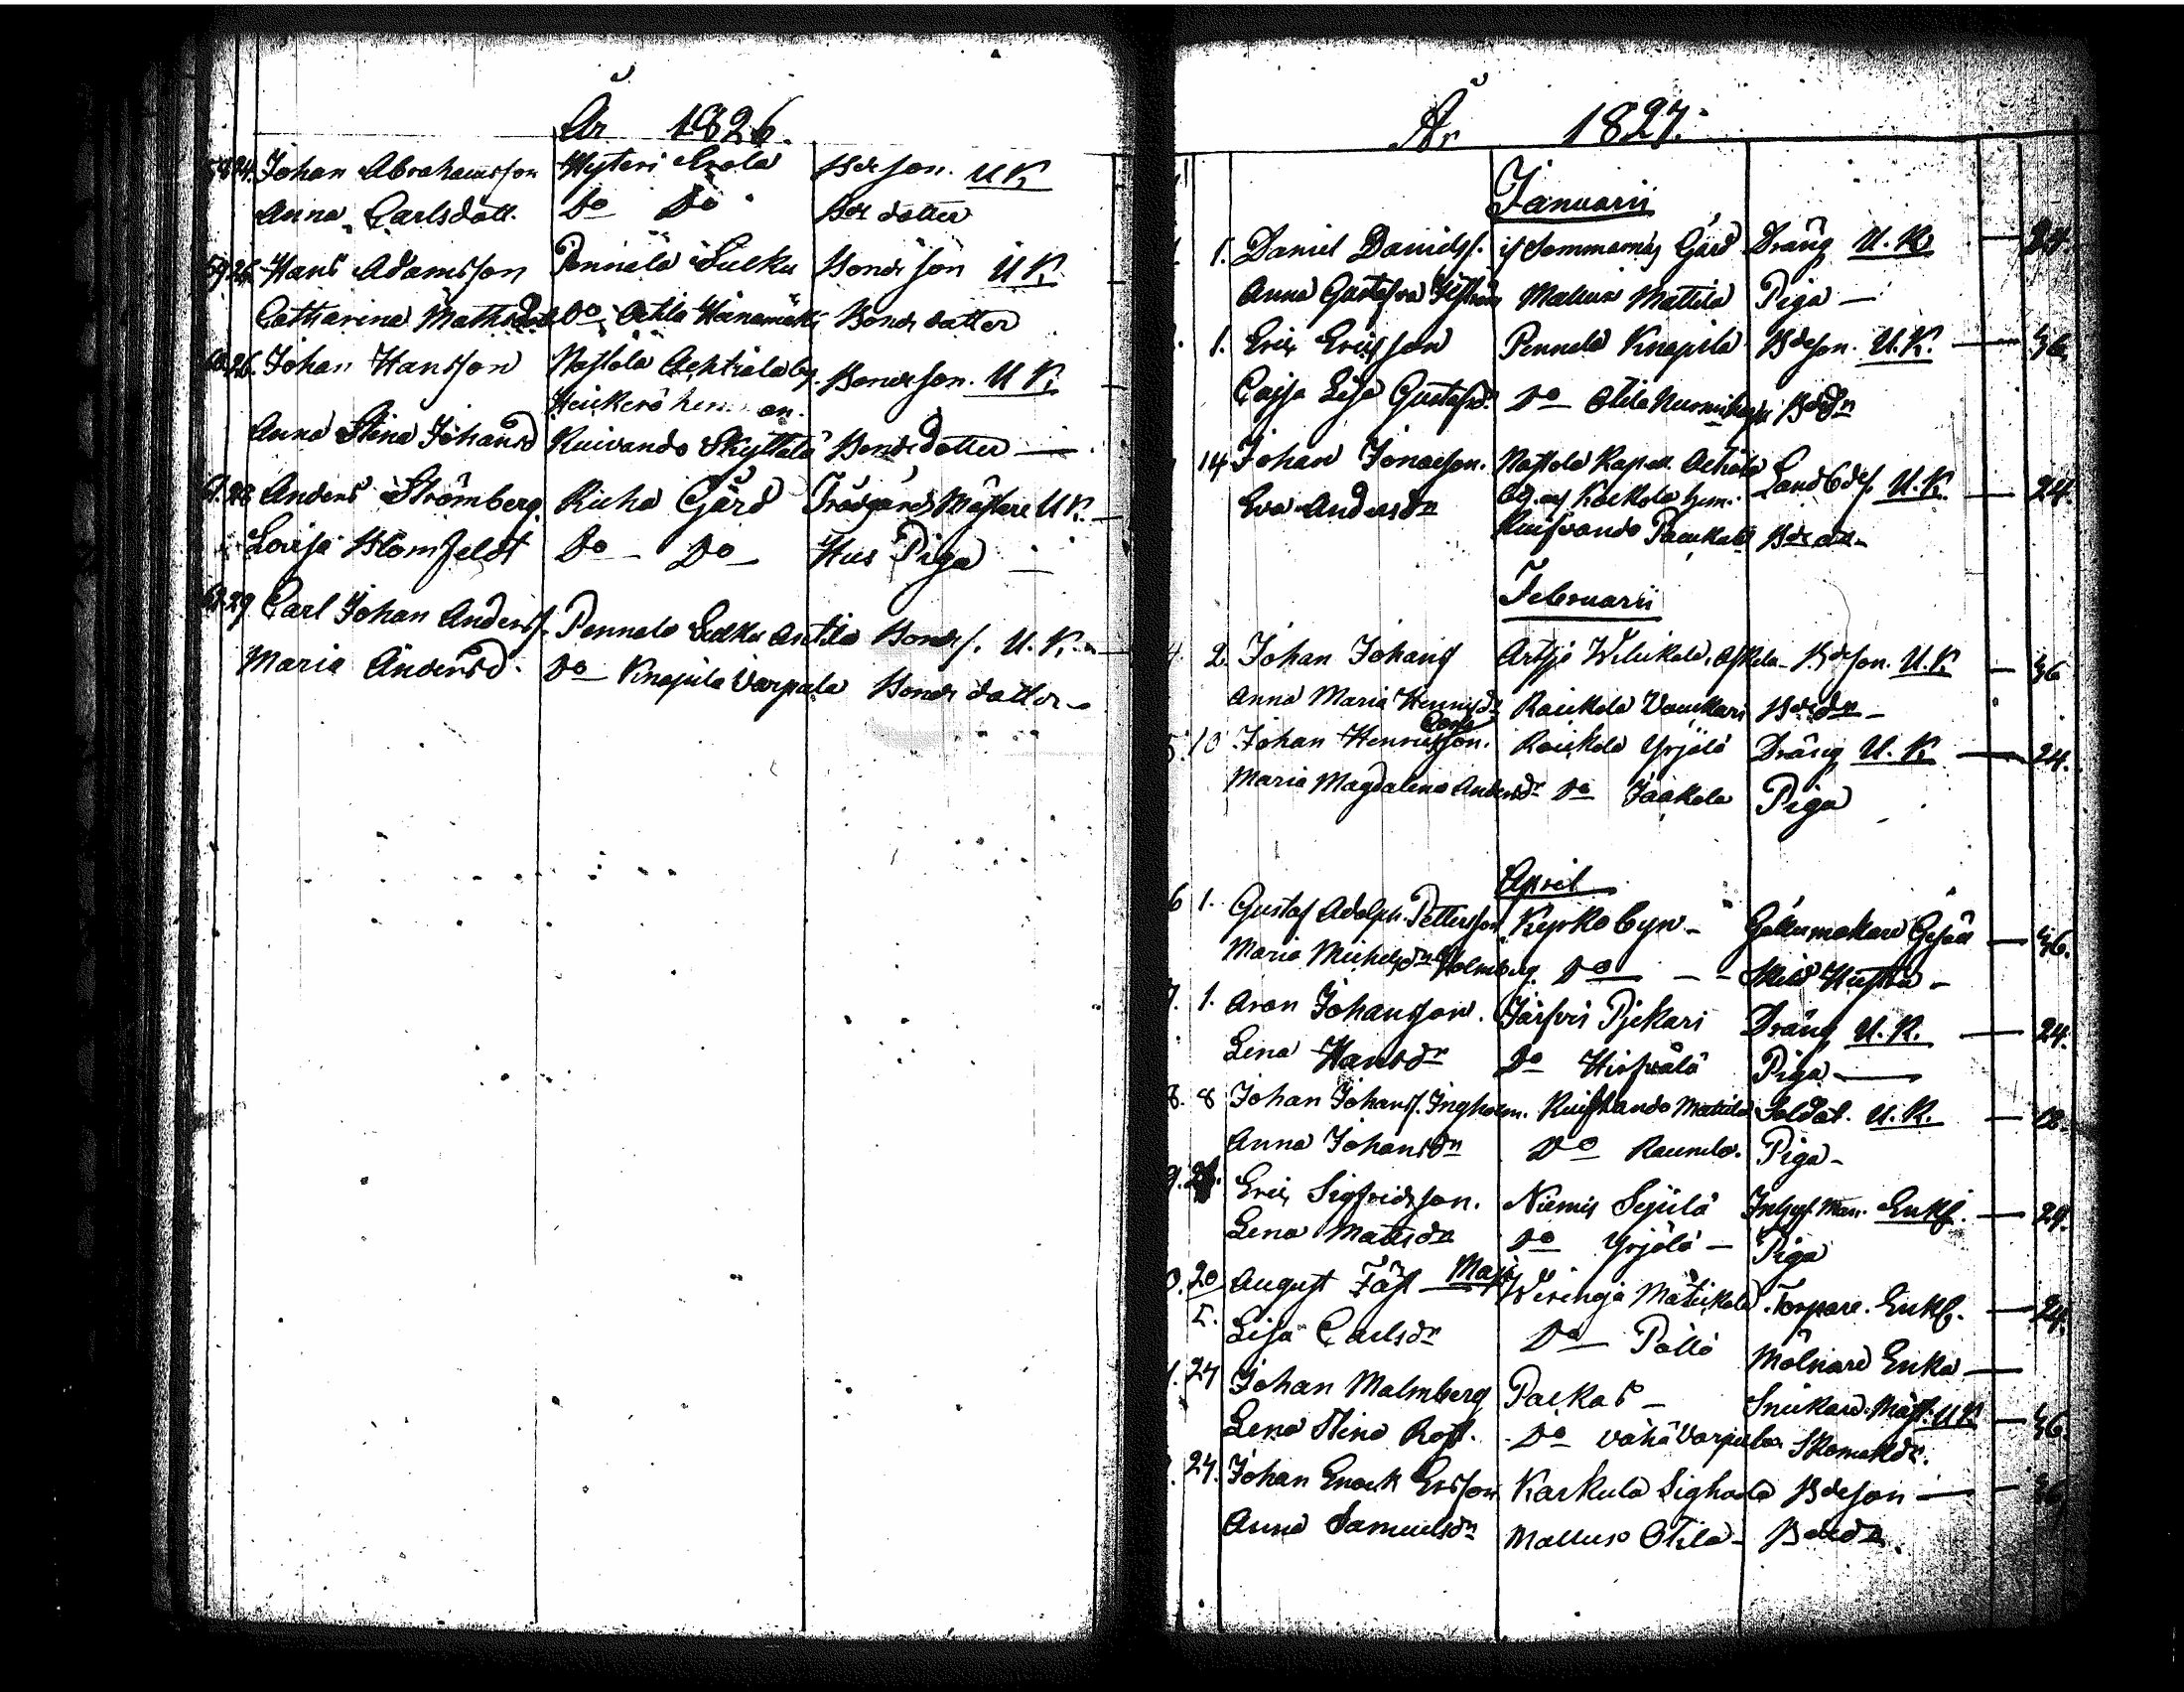 År 1826.
58 24. Johan Abrahamsson Hyteri Erola Bdeson. U K
Anna Carlsdott. Do Do Bde dotter
59 26. Hans Adamsson Pennala Sulku Bonde son U K.
Catharina Mathsdott Do Ottila Heinamäki Bonde dotter
60. 26. Johan Hansson Nastola Achtiala by. Bondeson. U K.
Heickerö
Anna Stina Johansd Kuivando Skyttälä Bonde dotter —
61. 28 Anders Strömberg. Richa Gård Trädgårds Mästare U K. —
Lovisa Blomfeldt Do — Do — Hus Piga —
62. 29 Carl Johan Anderss. Pennala Sulku Anttila Bondes. U. K. —
Maria Andersd. Do — Knapila Varpula Bonde dotter —
År 1827.
Januarii
1. Daniel Daniels. Sommarnäs Gård Dräng U. K. — 24.
Anna Gustafva Mallusi Mattila Piga —
1. Eric Ericsson Pennala Knapila Bdeson. U. K. — 36.
Cajsa Lisa Gustafsdr. Do — Otila Bdedr
14 Johan Jonasson. Nastola Kapell. Achiala Landbds. U. K. — 24.
Eva Andersdr by. af Kockola hem.
Kuifvando Paukku Bdedr —
Februarii
4. 2. Johan Johans Artsjö Wilikala, Bdeson. U. K — 36
Anna Maria Henrisdr Raickala Vouckari Bdedr —
5. 10 Johan Henricsson. Carls Raickala Yrjölä Dräng U. K — 24.
Maria Magdalena Andersdr Do Jaakola Piga
April
6 1. Gustaf Adolph Pettersson Kyrko byn — Gesäll — 36.
Maria Michelsdr Holmberg. Do — — —
7. 1. Aron Johansson. Järfvis Pjekari Dräng U. K. — 24.
Lena Hansdr Do Hirfvälä Piga —
8. 8 Johan Johanss. Ingholm. Kuifvando Mattila Soldat. U. K. — 12.
Anna Johansdr Do Raunila. Piga —
9. Eric Sigfridsson. Niemis Sepälä Inhys Man. Enkl. — 24.
Lena Matsdr Do Yrjölä — Piga
0. 20 August Fäst — Maji Weringä Mätickälä. Torpare. Enkl. — 24.
5. Lisa Carlsdr Do — Pällö Mölnare Enka —
1. 27 Johan Malmberg Packas — Snickare. Mäst. U K — 36
Lena Stina Rost. Do — Vähä Varpula Skomakdr.
27. Johan Enock Ersson Karkula Sighola Bdeson — 36
Anna Samuelsdr Mallusi Otila — Bdedr.